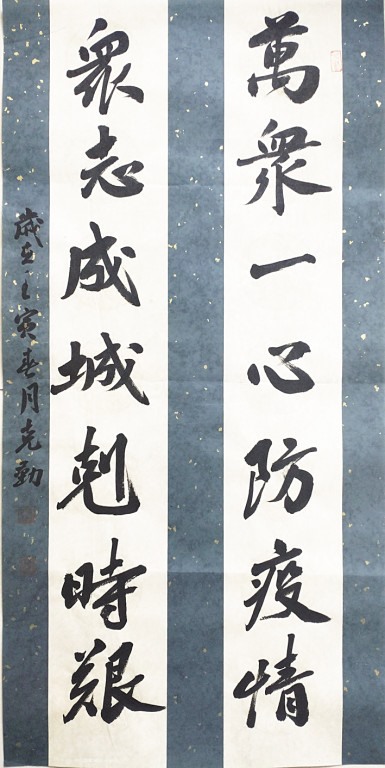 萬衆一心防疫情
衆志成城剋時艱
歲在壬寅春月克勤